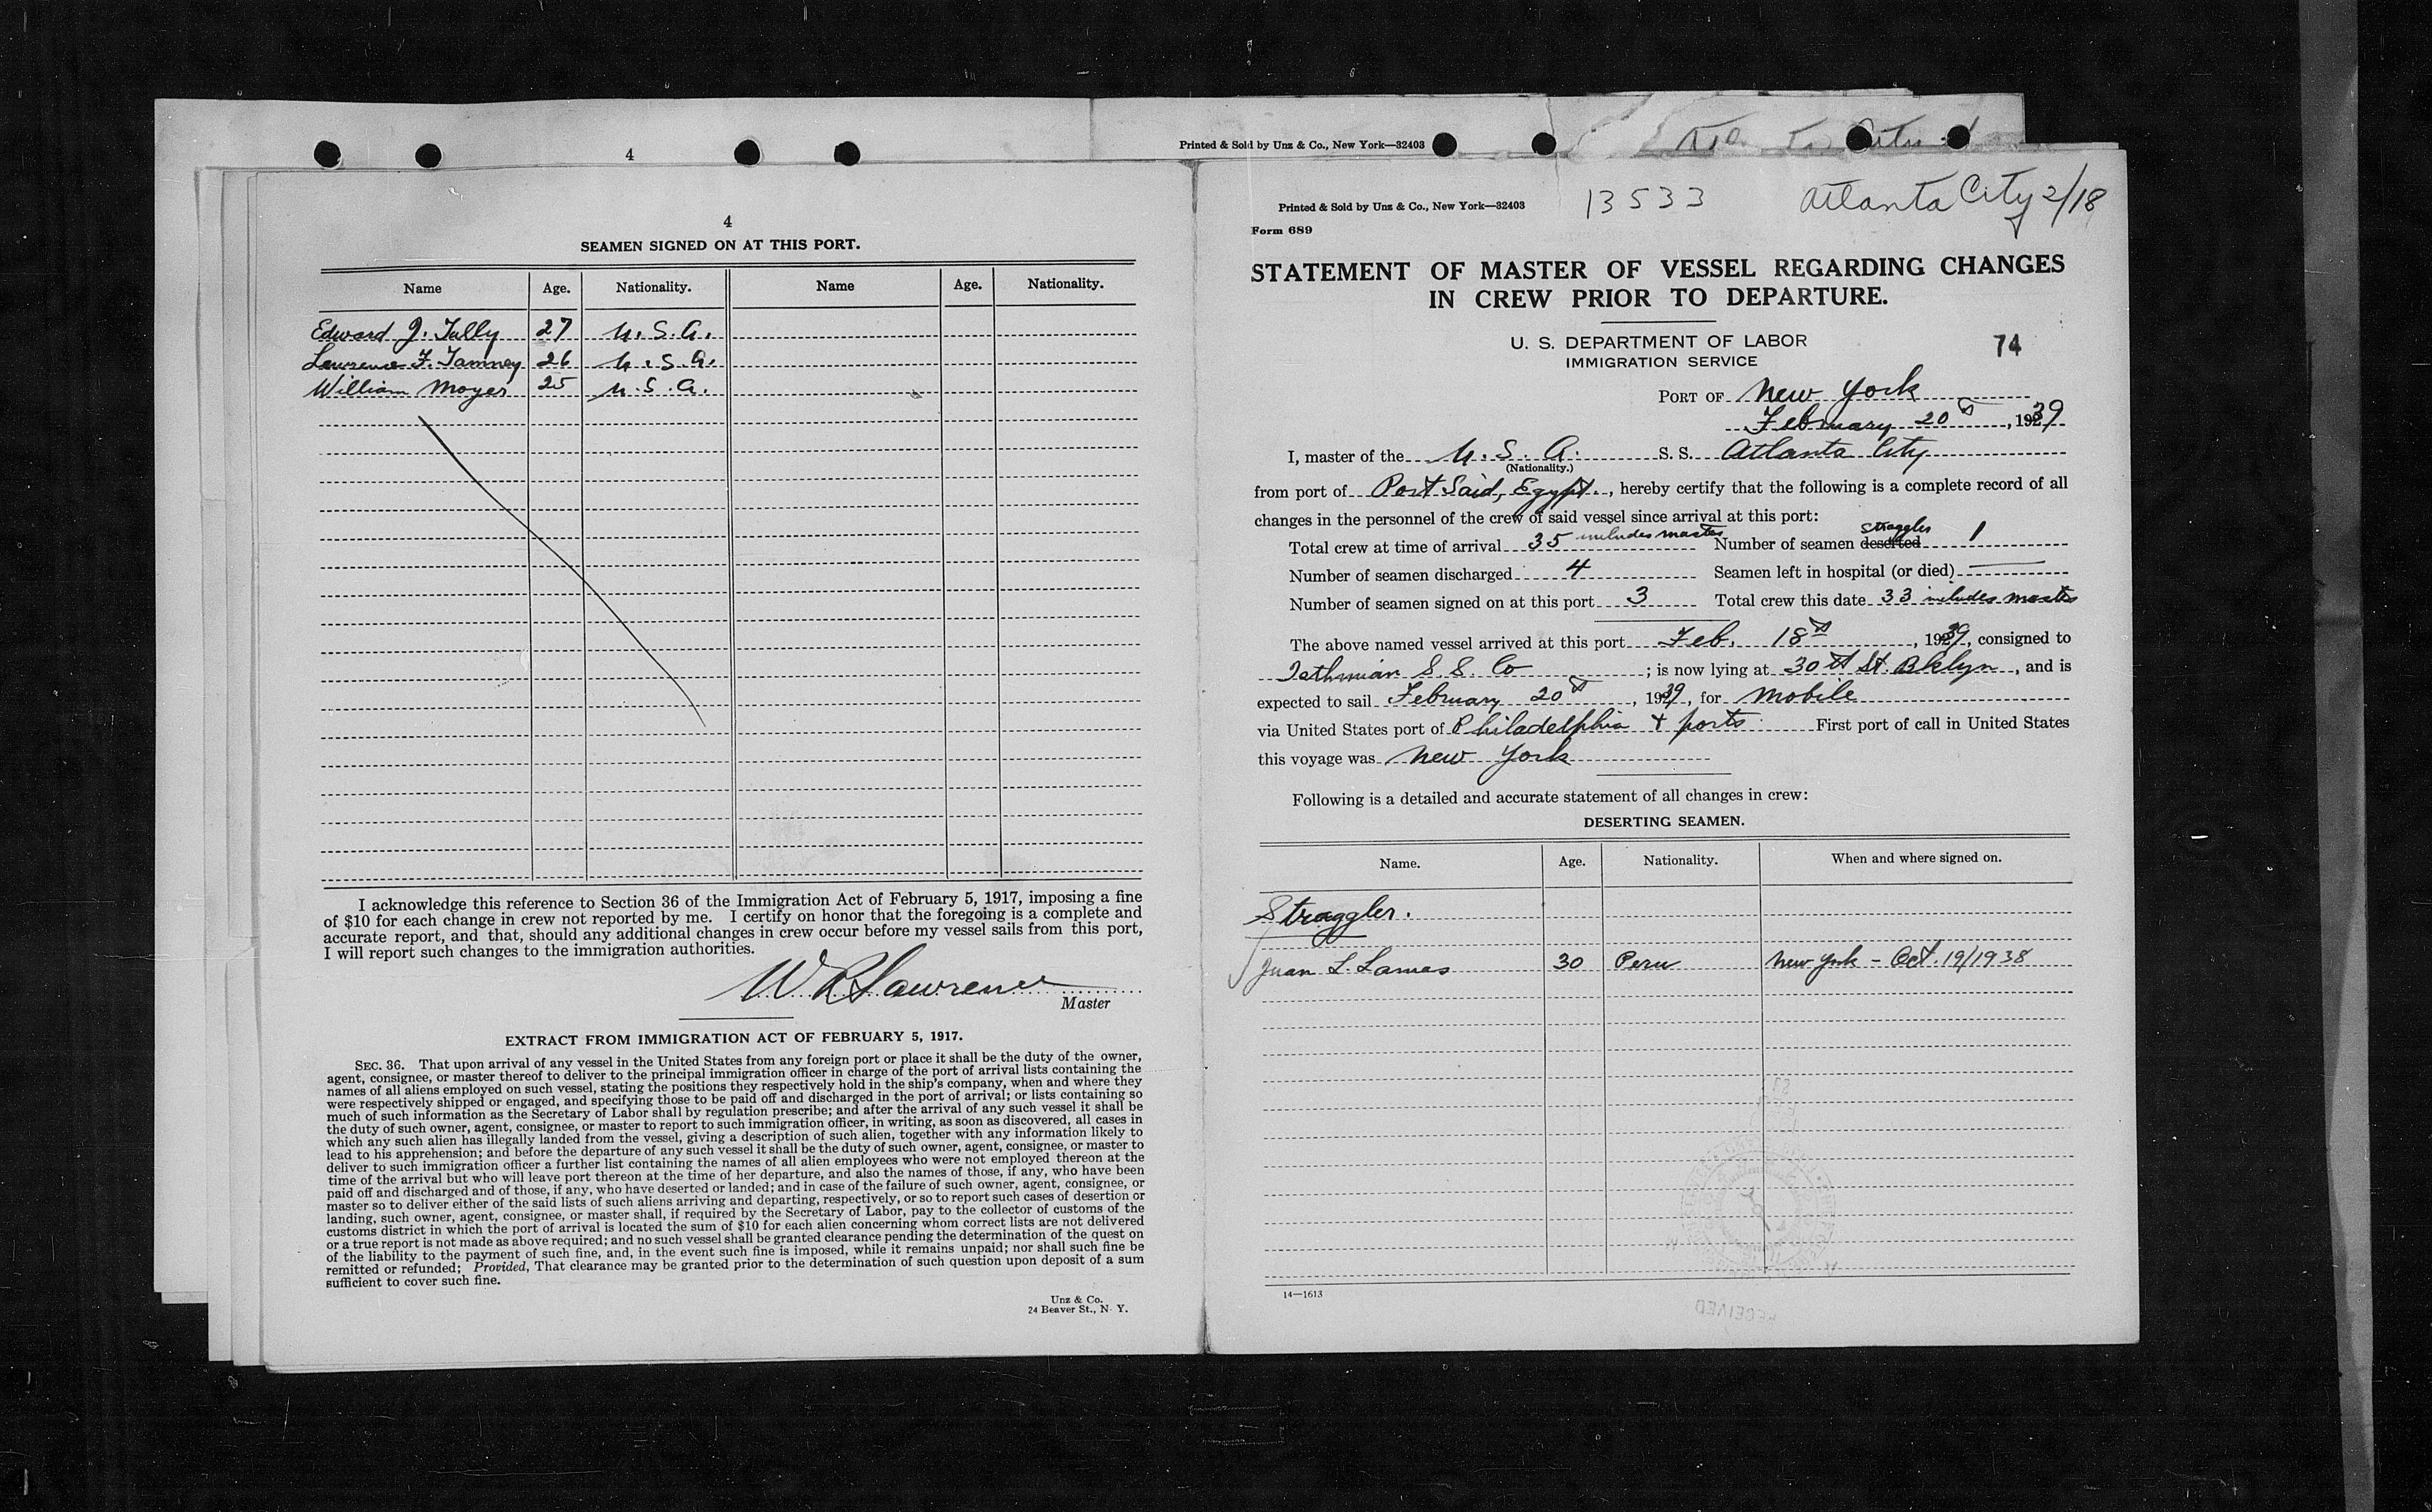 4
Printed & Sold by Unz & Co., New York—32403
4
SEAMEN SIGNED ON AT THIS PORT.
Name Age. Nationality. Name Age. Nationality.
Edward J. Tully 27 U.S.A.
Lawrence F. Tamney 26 U.S.A.
William Moyer 25 U.S.A.
I acknowledge this reference to Section 36 of the Immigration Act of February 5, 1917, imposing a fine
of $10 for each change in crew not reported by me. I certify on honor that the foregoing is a complete and
accurate report, and that, should any additional changes in crew occur before my vessel sails from this port,
I will report such changes to the immigration authorities.
W R Lawrence
Master
EXTRACT FROM IMMIGRATION ACT OF FEBRUARY 5, 1917.
SEC. 36. That upon arrival of any vessel in the United States from any foreign port or place it shall be the duty of the owner,
agent, consignee, or master thereof to deliver to the principal immigration officer in charge of the port of arrival lists containing the
names of all aliens employed on such vessel, stating the positions they respectively hold in the ship's company, when and where they
were respectively shipped or engaged, and specifying those to be paid off and discharged in the port of arrival; or lists containing so
much of such information as the Secretary of Labor shall by regulation prescribe; and after the arrival of any such vessel it shall be
the duty of such owner, agent, consignee, or master to report to such immigration officer, in writing, as soon as discovered, all cases in
which any such alien has illegally landed from the vessel, giving a description of such alien, together with any information likely to
lead to his apprehension; and before the departure of any such vessel it shall be the duty of such owner, agent, consignee, or master to
deliver to such immigration officer a further list containing the names of all alien employees who were not employed thereon at the
time of the arrival but who will leave port thereon at the time of her departure, and also the names of those, if any, who have been
paid off and discharged and of those, if any, who have deserted or landed; and in case of the failure of such owner, agent, consignee, or
master so to deliver either of the said lists of such aliens arriving and departing, respectively, or so to report such cases of desertion or
landing, such owner, agent, consignee, or master shall, if required by the Secretary of Labor, pay to the collector of customs of the
customs district in which the port of arrival is located the sum of $10 for each alien concerning whom correct lists are not delivered
or a true report is not made as above required; and no such vessel shall be granted clearance pending the determination of the quest on
of the liability to the payment of such fine, and, in the event such fine is imposed, while it remains unpaid; nor shall such fine be
remitted or refunded; Provided, That clearance may be granted prior to the determination of such question upon deposit of a sum
sufficient to cover such fine.
Unz & Co.
24 Beaver St., N. Y.
Printed & Sold by Unz & Co., New York—32403 13533 Atlanta City 2/18
Form 689
STATEMENT OF MASTER OF VESSEL REGARDING CHANGES
IN CREW PRIOR TO DEPARTURE.
U. S. DEPARTMENT OF LABOR 74
IMMIGRATION SERVICE
PORT OF New York
February 20th, 1939
I, master of the U. S. A. S. S. Atlanta City
(Nationality.)
from port of Port Said, Egypt., hereby certify that the following is a complete record of all
changes in the personnel of the crew of said vessel since arrival at this port:
Total crew at time of arrival 35 includes master Number of seamen deserted straggler 1
Number of seamen discharged 4 Seamen left in hospital (or died)
Number of seamen signed on at this port 3 Total crew this date 33 includes master
The above named vessel arrived at this port Feb. 18th, 1939, consigned to
Isthmian S. S. Co; is now lying at 30th St. Bklyn, and is
expected to sail February 20th, 1939, for Mobile
via United States port of Philadelphia + ports First port of call in United States
this voyage was New York
Following is a detailed and accurate statement of all changes in crew:
DESERTING SEAMEN.
Name. Age. Nationality. When and where signed on.
Straggler.
Juan L. Lamas 30 Peru New York - Oct. 19/1938
14—1613
RECEIVED